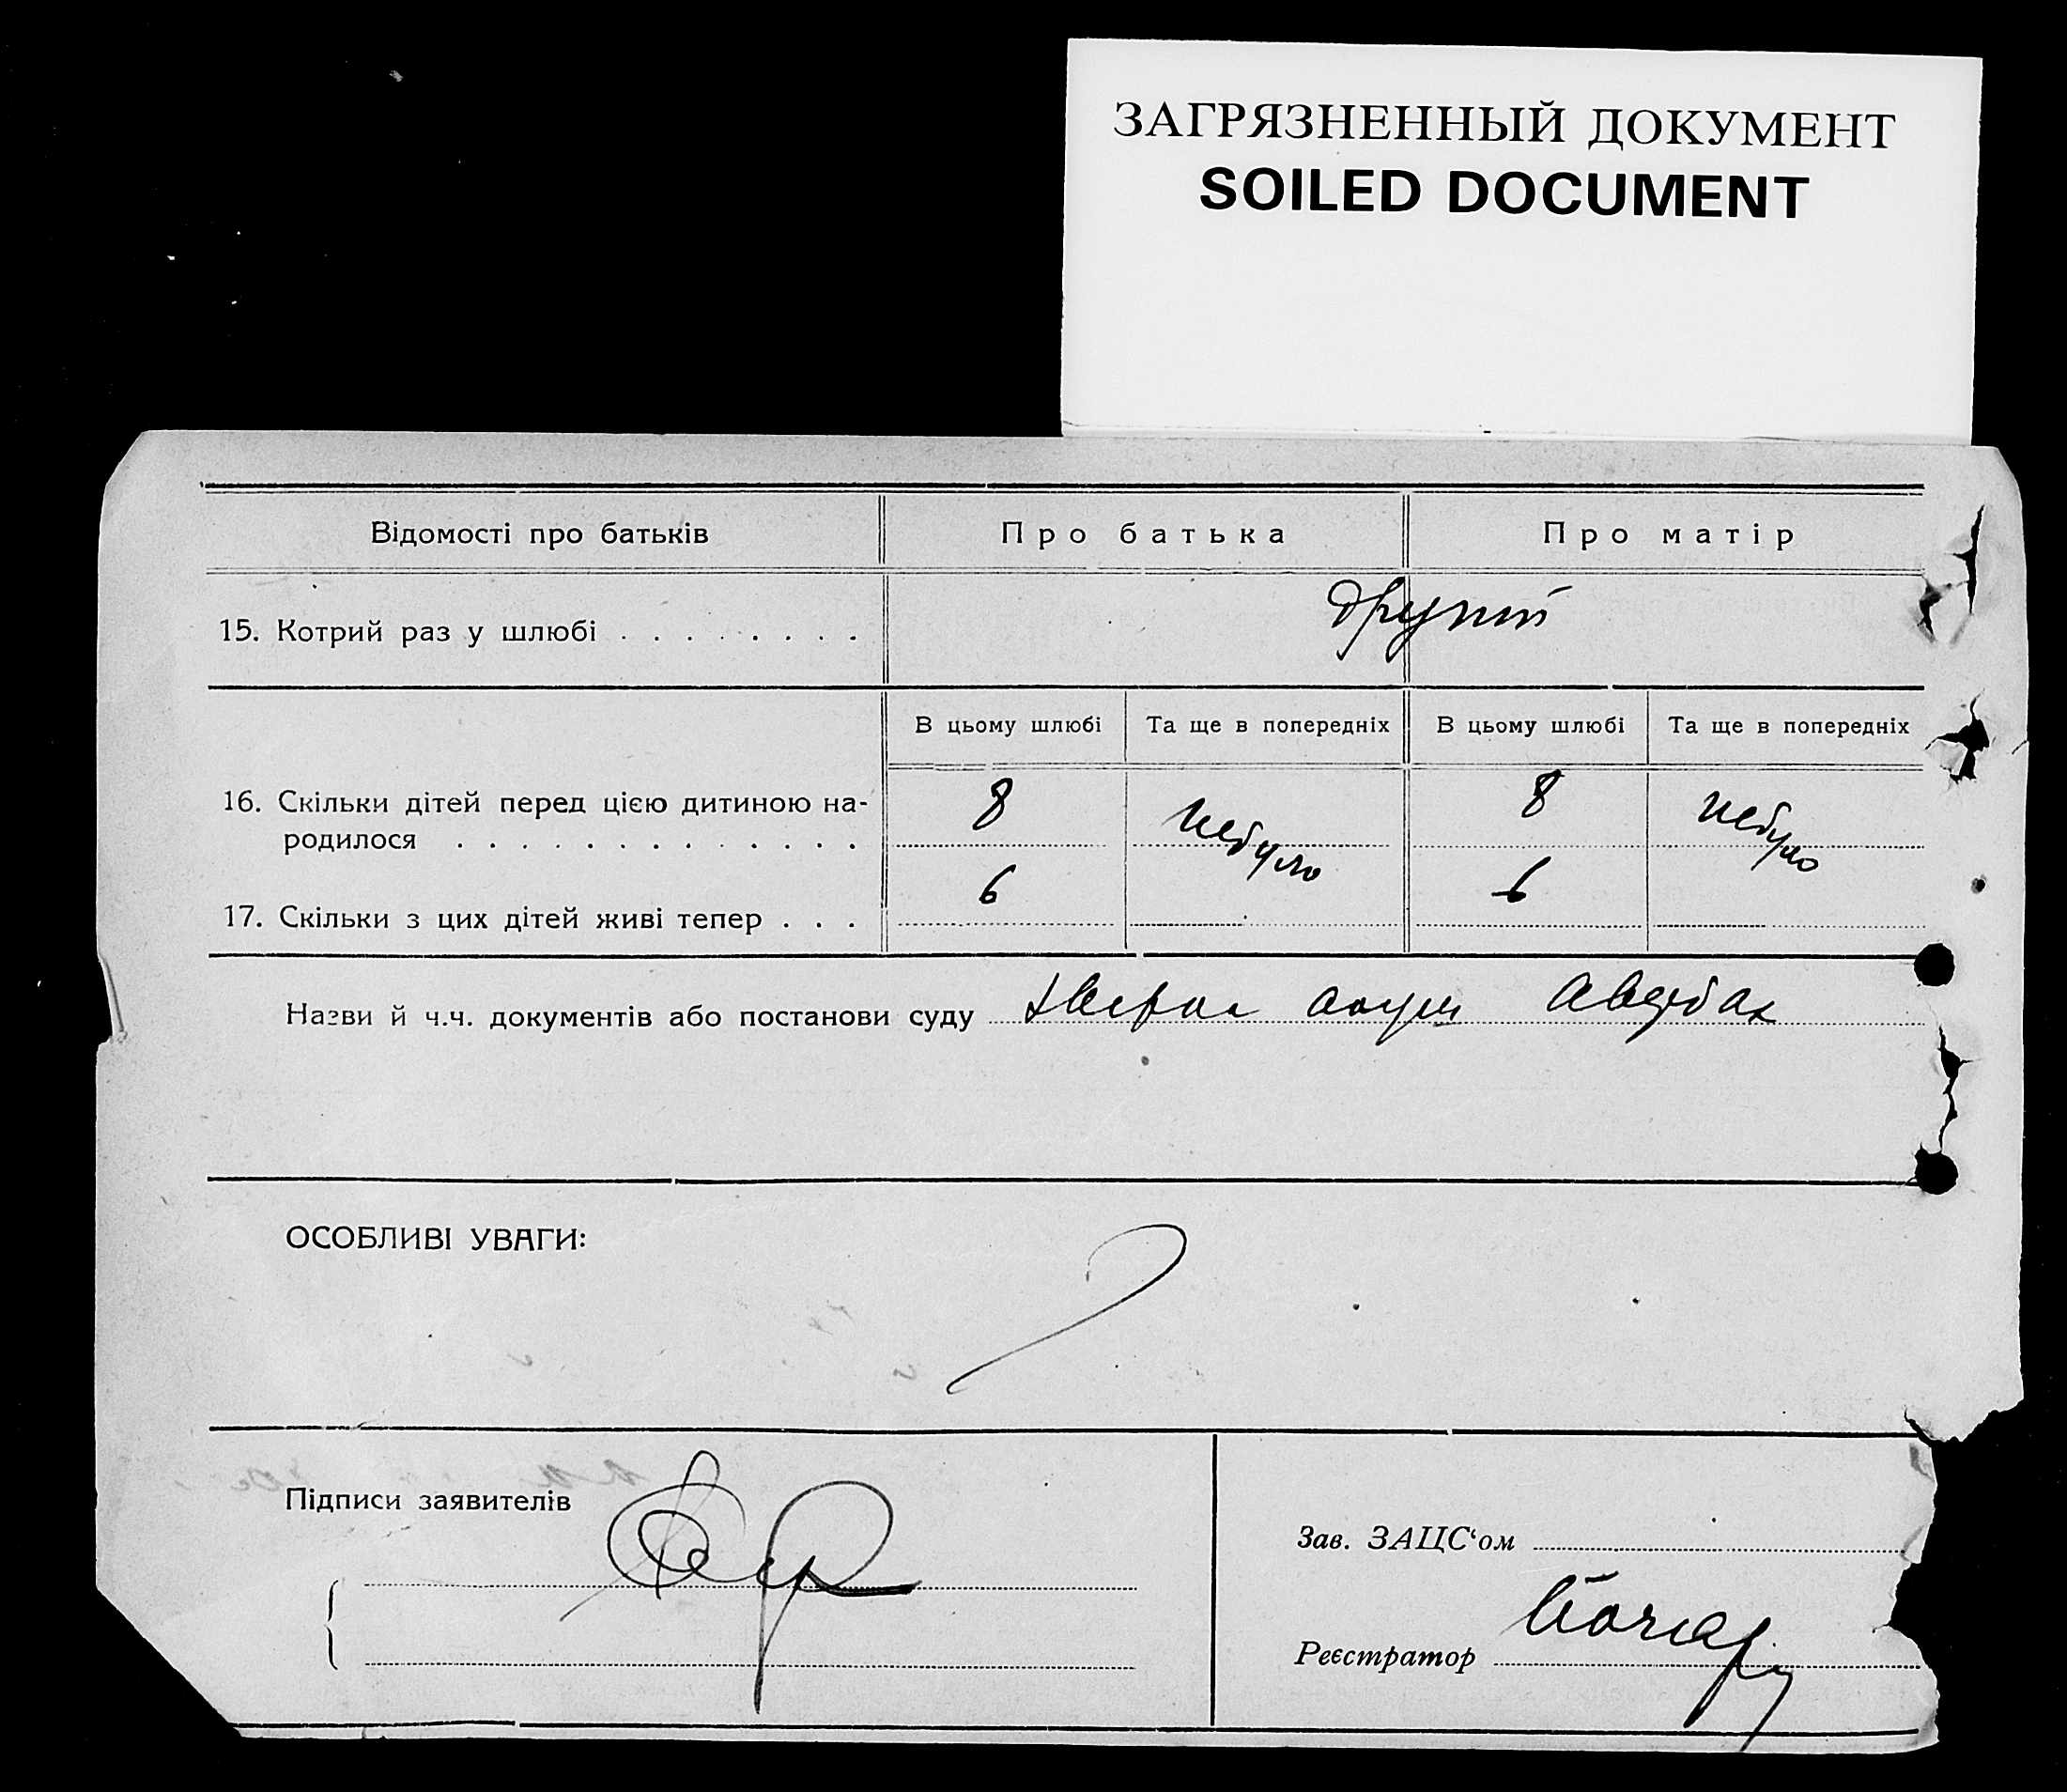 ЗАГРЯЗНЕННЫЙ ДОКУМЕНТ
SOILED DOCUMENT
Відомості про батьків Про батька Про матір
15. Котрий раз у шлюбі . . . . . . . .
В цьому шлюбі Та ще в попередніх В цьому шлюбі Та ще в попередніх
16. Скільки дітей перед цією дитиною на- 8 небуло 8 небуло
родилося . . . . . . . . . . . . .
17. Скільки з цих дітей живі тепер . . . 6 6
Назви й ч.ч. документів або постанови суду
ОСОБЛИВІ УВАГИ:
Підписи заявителів
Зав. ЗАЦС‘ом
Реєстратор